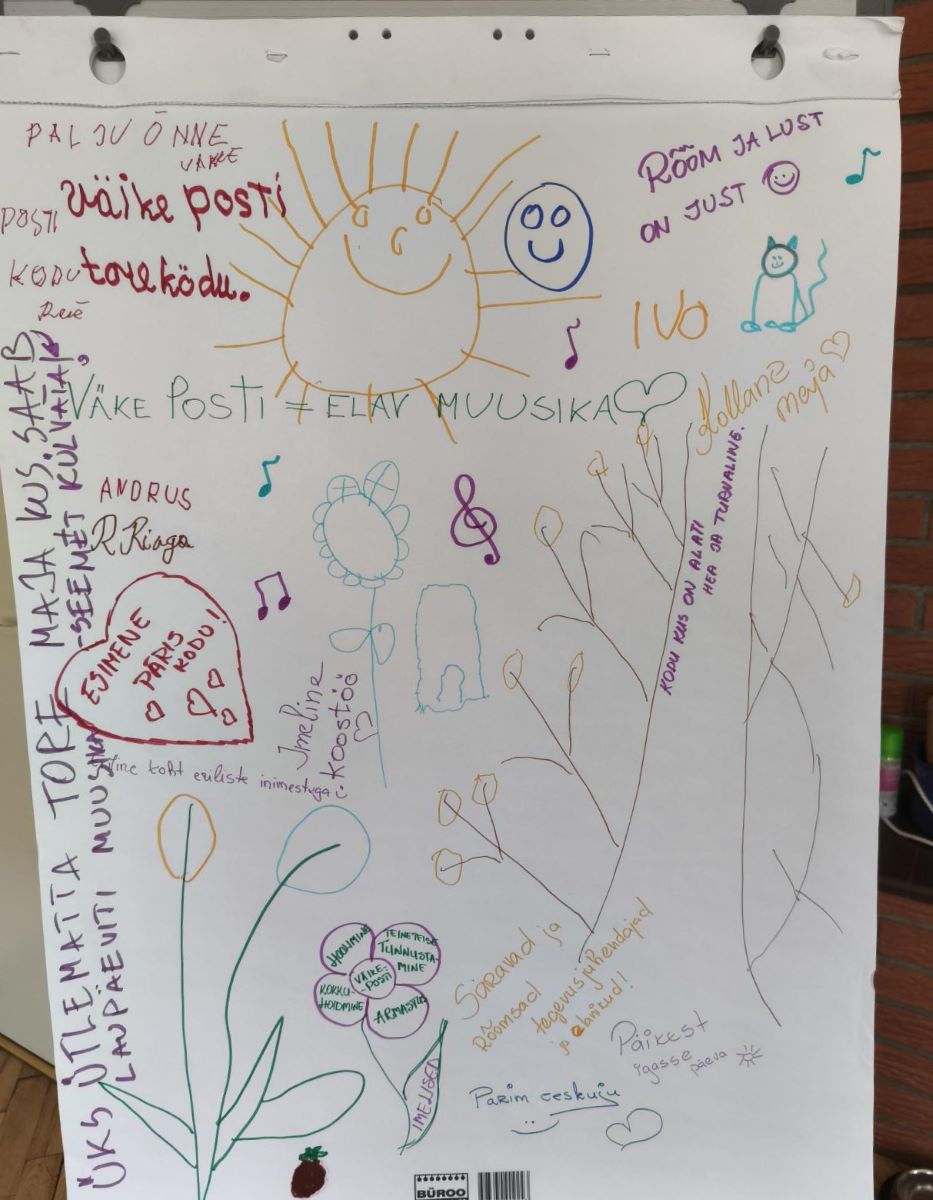 PALJU ÕNNE
VÄIKE
POSTI
KODU
väike posti
tore ködu.
RÕÕM JA LUST
ON JUST
IVO
VÄKE POSTI = ELAV MUUSIKA
Kollane
maja
KODU KUS ON ALATI
HEA JA TURVALINE.
ANDRUS
ESIMENE
PÄRIS
KODU!
Imeline
koostöö
koht eriliste inimestega
ÜKS ÜTLEMATTA TORE MAJA KUS SAAB
LAUPÄEVITI MUUSIKA
-SEEMET KÜLVATA
HOOLIMINE
TEINETEISE
TUNNUSTA-
MINE
VÄIKE-
POSTI
KOKKU-
HOIDMINE
ARMASTUS
IMELISED
Säravad ja
Rõõmsad
tegevusjuhendajad
ja elanikud!!
Päikest
igasse päeva
Parim eeskuju
BÜROO